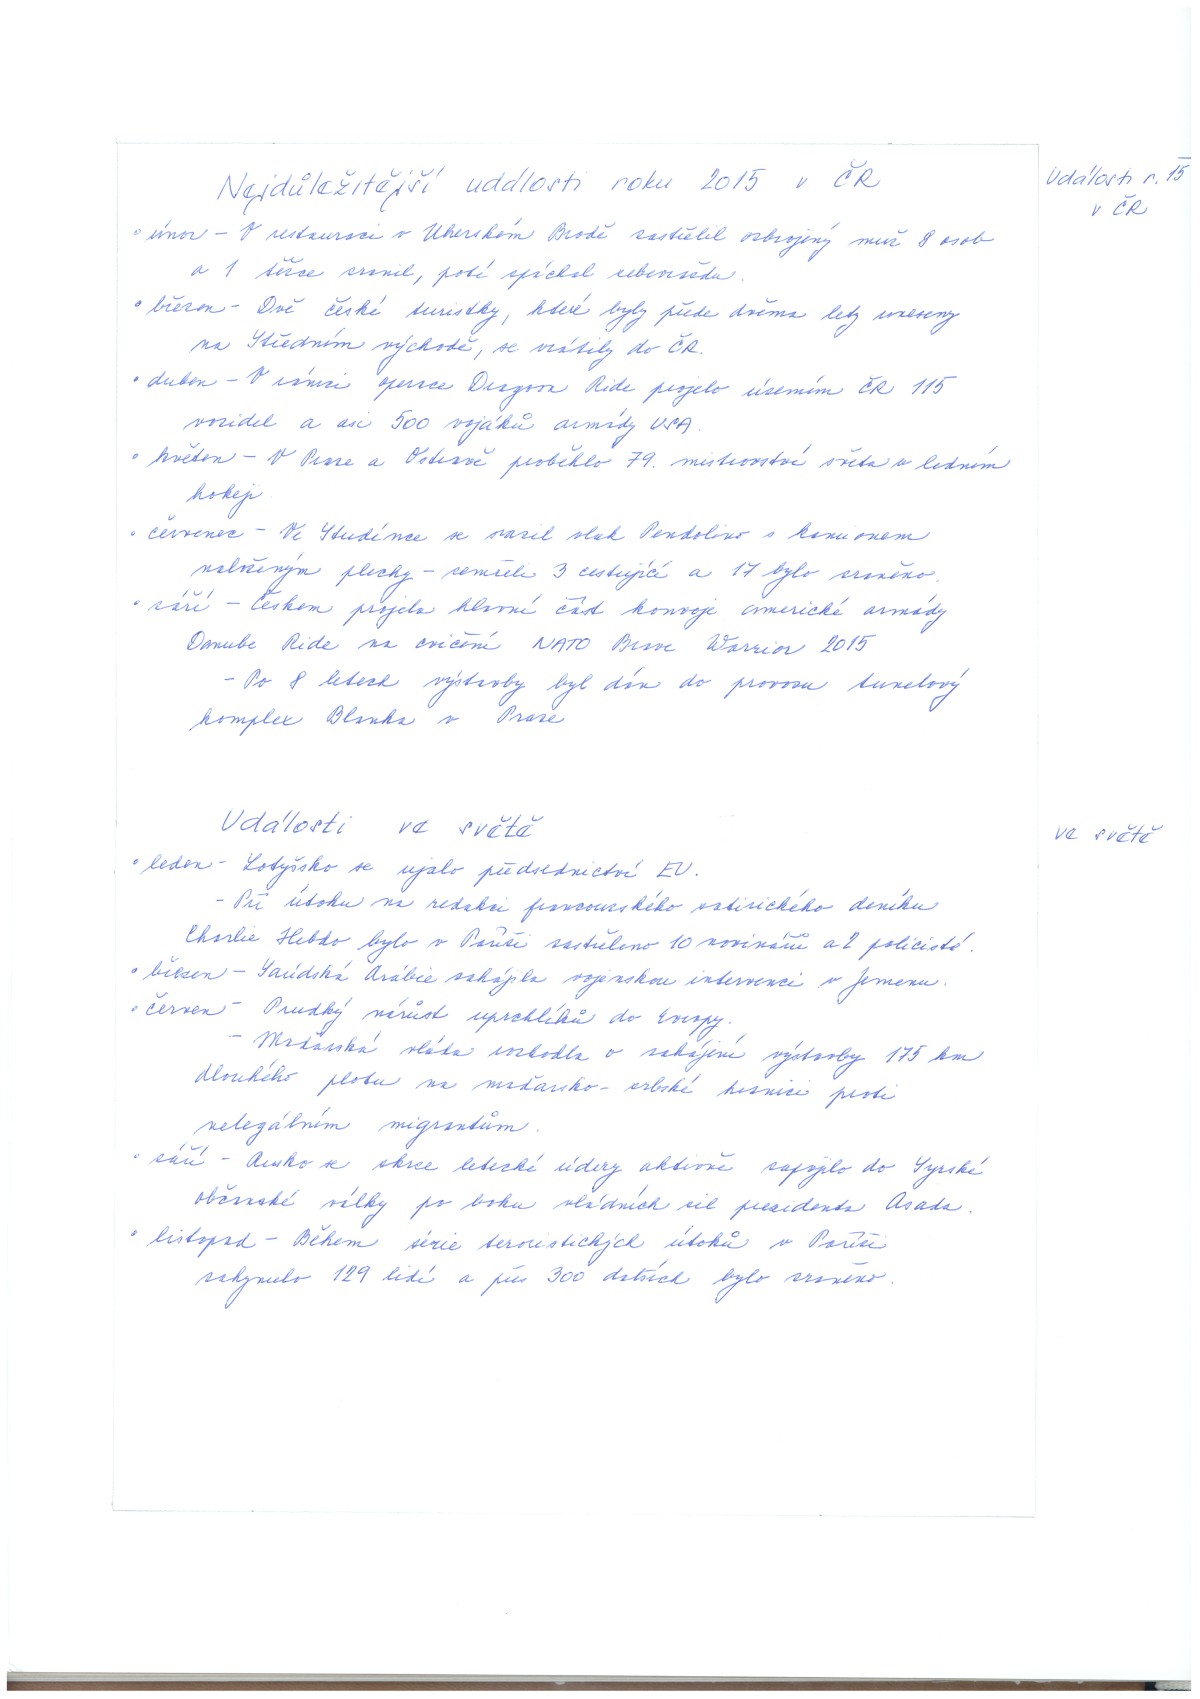 Nejdůležitější události roku 2015 v ČR
Události r. 15
v ČR
• únor – V restauraci v Uherském Brodě zastřelil ozbrojený muž 8 osob
a 1 těžce zranil, poté spáchal sebevraždu.
• březen – Dvě české turistky, které byly přede dvěma lety uneseny
na Středním východě, se vrátily do ČR.
• duben – V rámci operace Dragoon Ride projelo územím ČR 115
vozidel a asi 500 vojáků armády USA.
• květen – V Praze a Ostravě proběhlo 79. mistrovství světa v ledním
hokeji.
• červenec – Ve Studénce se srazil vlak Pendolino s kamionem
naloženým plechy – zemřeli 3 cestující a 17 bylo zraněno.
• září – Českem projela hlavní část konvoje americké armády
Danube Ride na cvičení NATO Brave Warrior 2015
– Po 8 letech výstavby byl dán do provozu tunelový
komplex Blanka v Praze
Události ve světě
ve světě
• leden – Lotyšsko se ujalo předsednictví EU.
– Při útoku na redakci francouzského satirického deníku
Charlie Hebdo bylo v Paříži zastřeleno 10 novinářů a 2 policisté.
• březen – Saúdská Arábie zahájila vojenskou intervenci v Jemenu.
• červen – Prudký nárůst uprchlíků do Evropy.
– Maďarská vláda rozhodla o zahájení výstavby 175 km
dlouhého plotu na maďarsko-srbské hranici proti
nelegálním migrantům.
• září – Rusko se skrze letecké údery aktivně zapojilo do Syrské
občanské války po boku vládních sil prezidenta Asada.
• listopad – Během série teroristických útoků v Paříži
zahynulo 129 lidí a přes 300 dalších bylo zraněno.